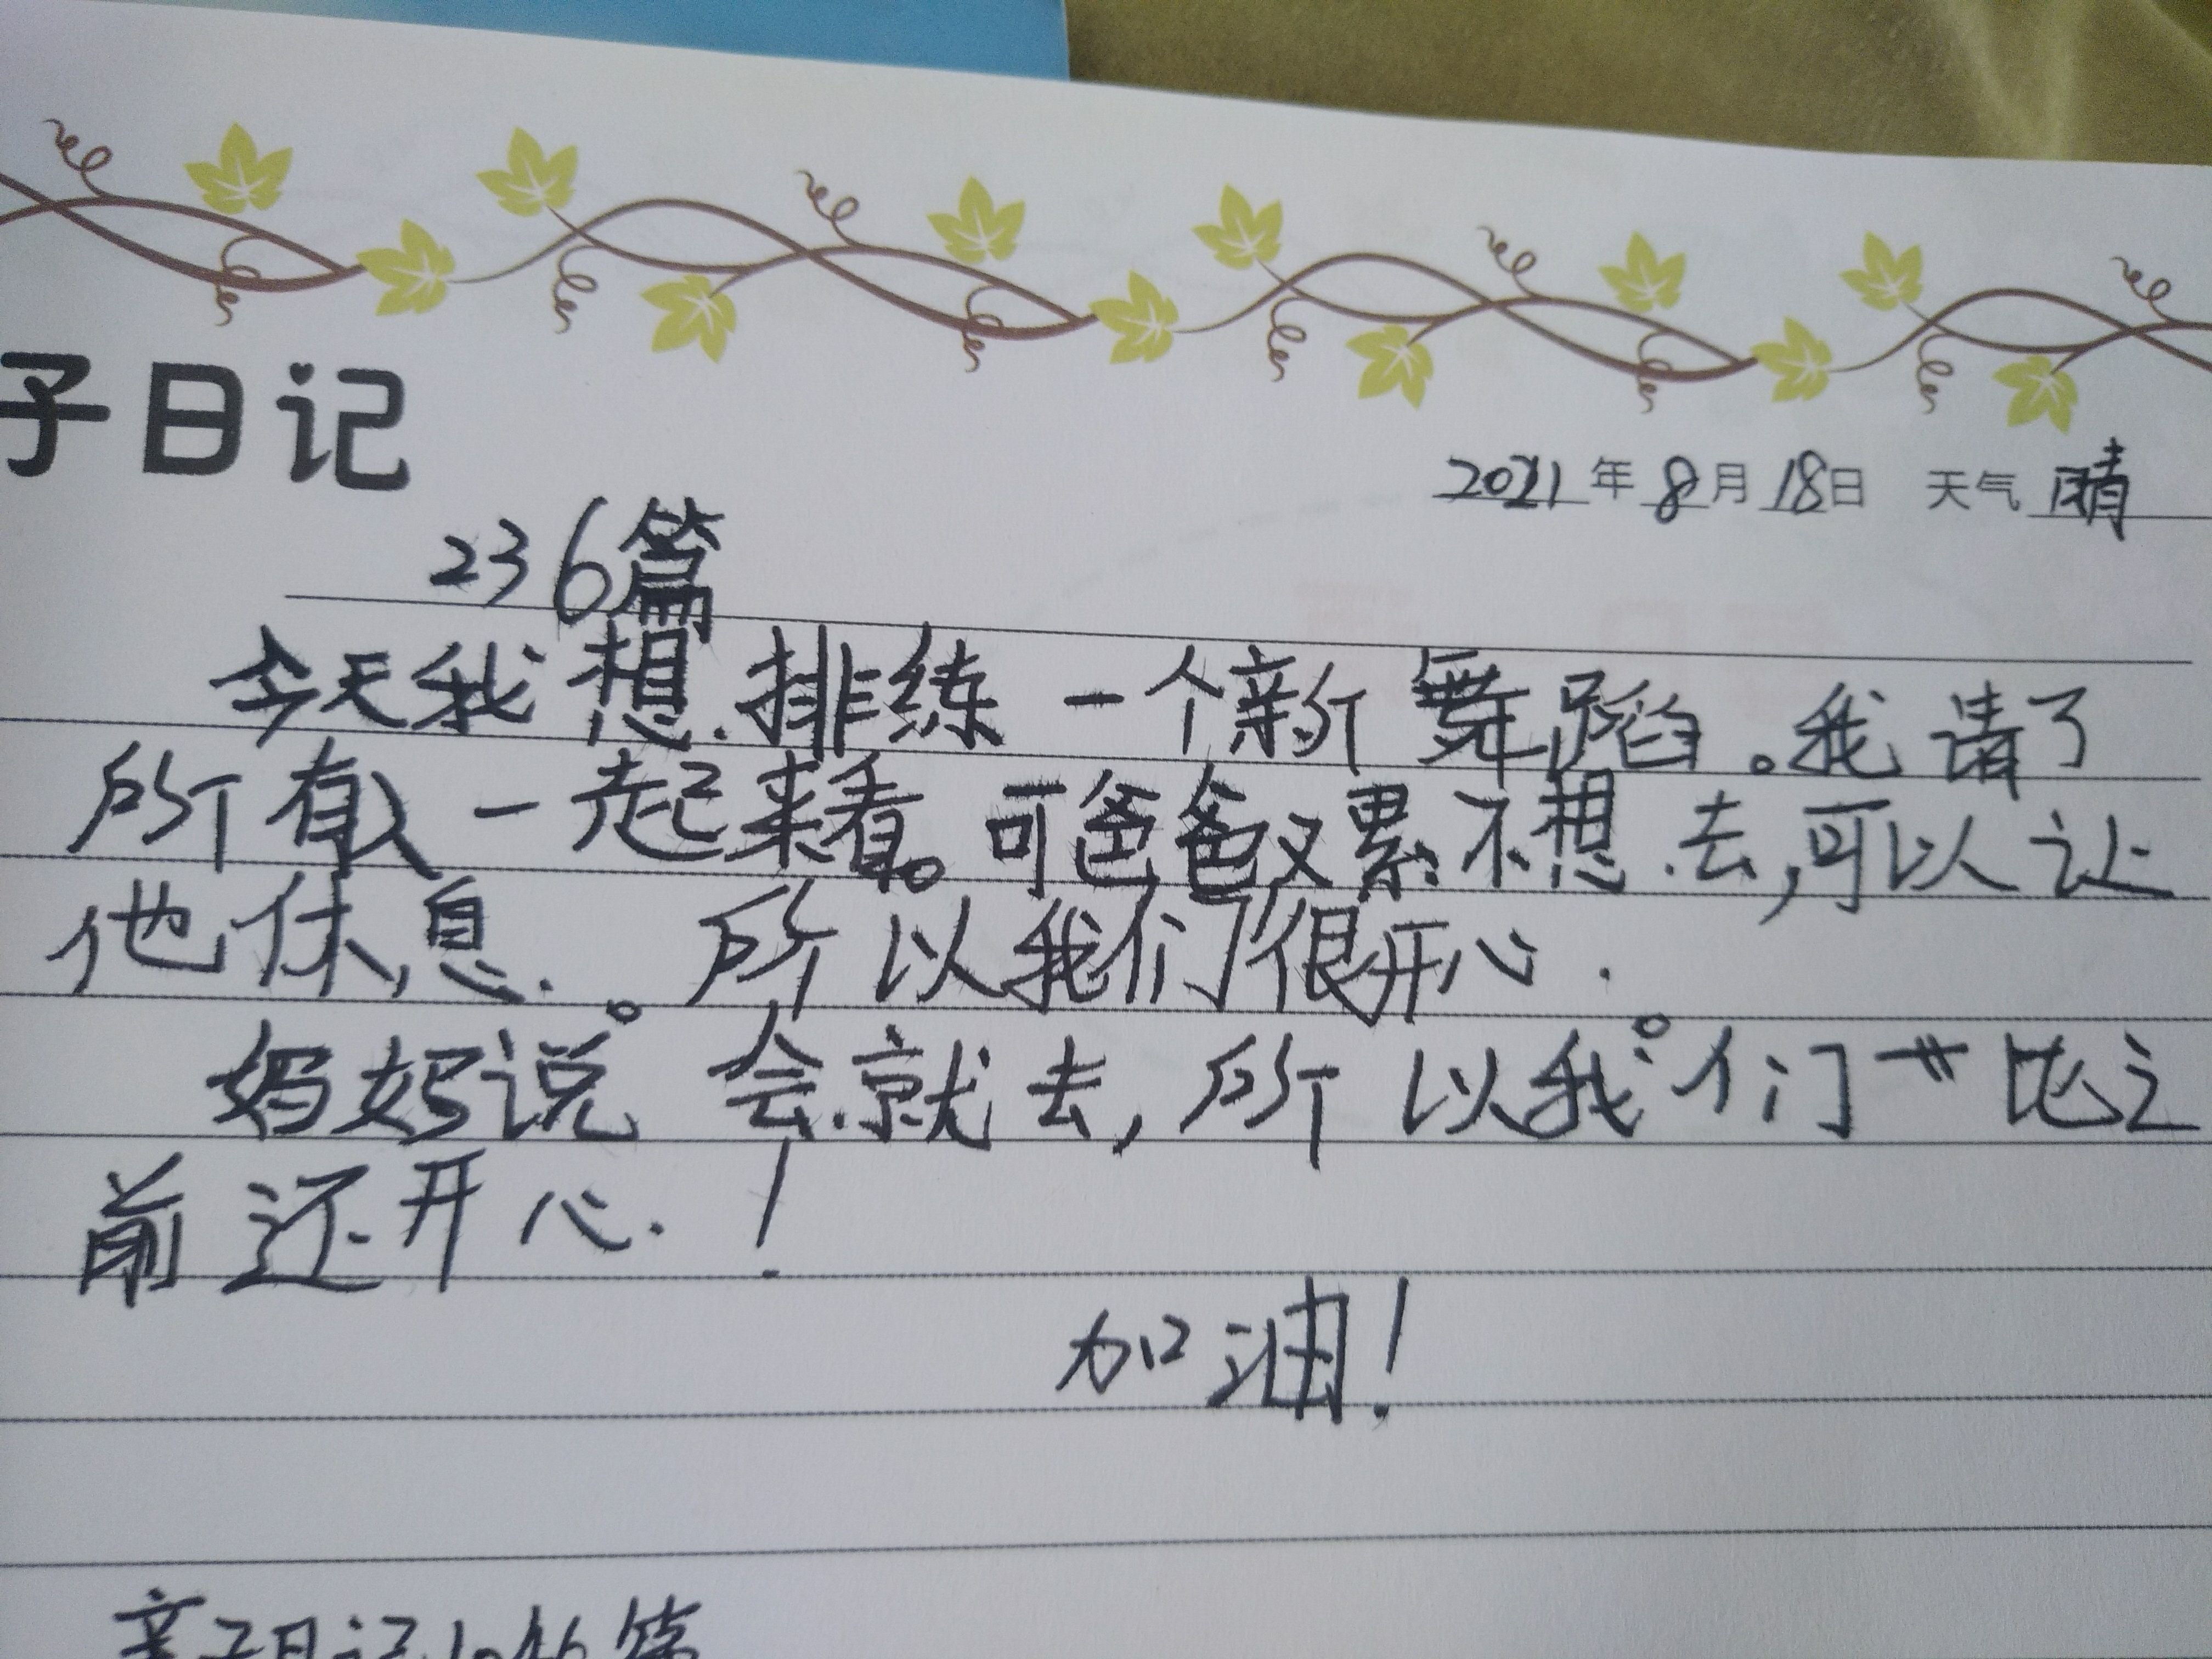 子日记
2021年8月18日 天气 晴
236篇
今天我想排练一个新舞蹈。我请了
所有人一起来看。可爸爸又累不想去,可以让
他休息。所以我们很开心.
妈妈说会就去,所以我们比之
前还开心!
加油!
亲子日记1046篇